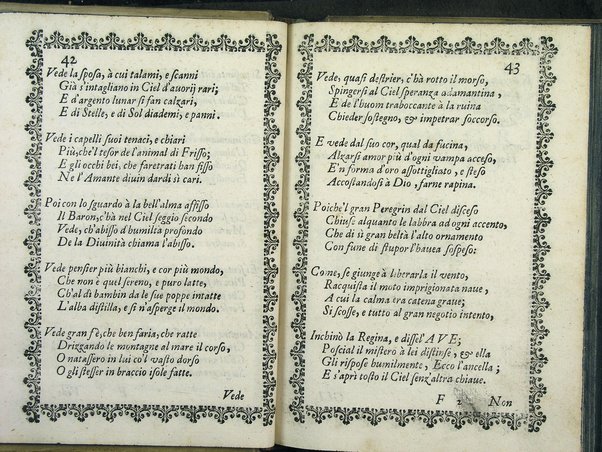 42
Vede la sposa, à cui talami, e scanni
Già s'intagliano in Ciel d'auorij rari;
E d'argento lunar si fan calzari,
E di Stelle, e di Sol diademi, e panni.
Vede i capelli suoi tenaci, e chiari
Più, che'l tesor de l'animal di Frisso;
E gli occhi bei, che faretrati han fisso
Ne l'Amante diuin dardi sì cari.
Poi con lo sguardo à la bell'alma affisso
Il Baron, c'hà nel Ciel seggio secondo
Vede, ch'abisso d'humiltà profondo
De la Diuinità chiama l'abisso.
Vede pensier più bianchi, e cor più mondo,
Che non è quel sereno, e puro latte,
Ch'al dì bambin da le sue poppe intatte
L'alba distilla, e sì n'asperge il mondo.
Vede gran fè, che ben faria, che ratte
Drizzando le montagne al mare il corso,
O natassero in lui co'l vasto dorso
O gli stesser in braccio isole fatte.
Vede
43
Vede, quasi destrier, c'hà rotto il morso,
Spingersi al Ciel speranza adamantina,
E de l'huom traboccante à la ruina
Chieder sostegno, & impetrar soccorso.
E vede dal suo cor, qual da fucina,
Alzarsi amor più d'ogni vampa acceso,
E'n forma d'oro assottigliato, e steso
Accostandosi à Dio, farne rapina.
Poiche'l gran Peregrin dal Ciel disceso
Chiuse alquanto le labbra ad ogni accento,
Che di sì gran beltà l'alto ornamento
Con fune di stupor l'hauea sospeso:
Come, se giunge à liberarla il vento,
Racquista il moto imprigionata naue,
A cui la calma era catena graue;
Si scosse, e tutto al gran negotio intento,
Inchinò la Regina, e disse! AVE;
Poscial il mistero à lei distinse, & ella
Gli rispose humilmente, Ecco l'ancella;
E s'aprì tosto il Ciel senz'altra chiaue.
F 2 Non